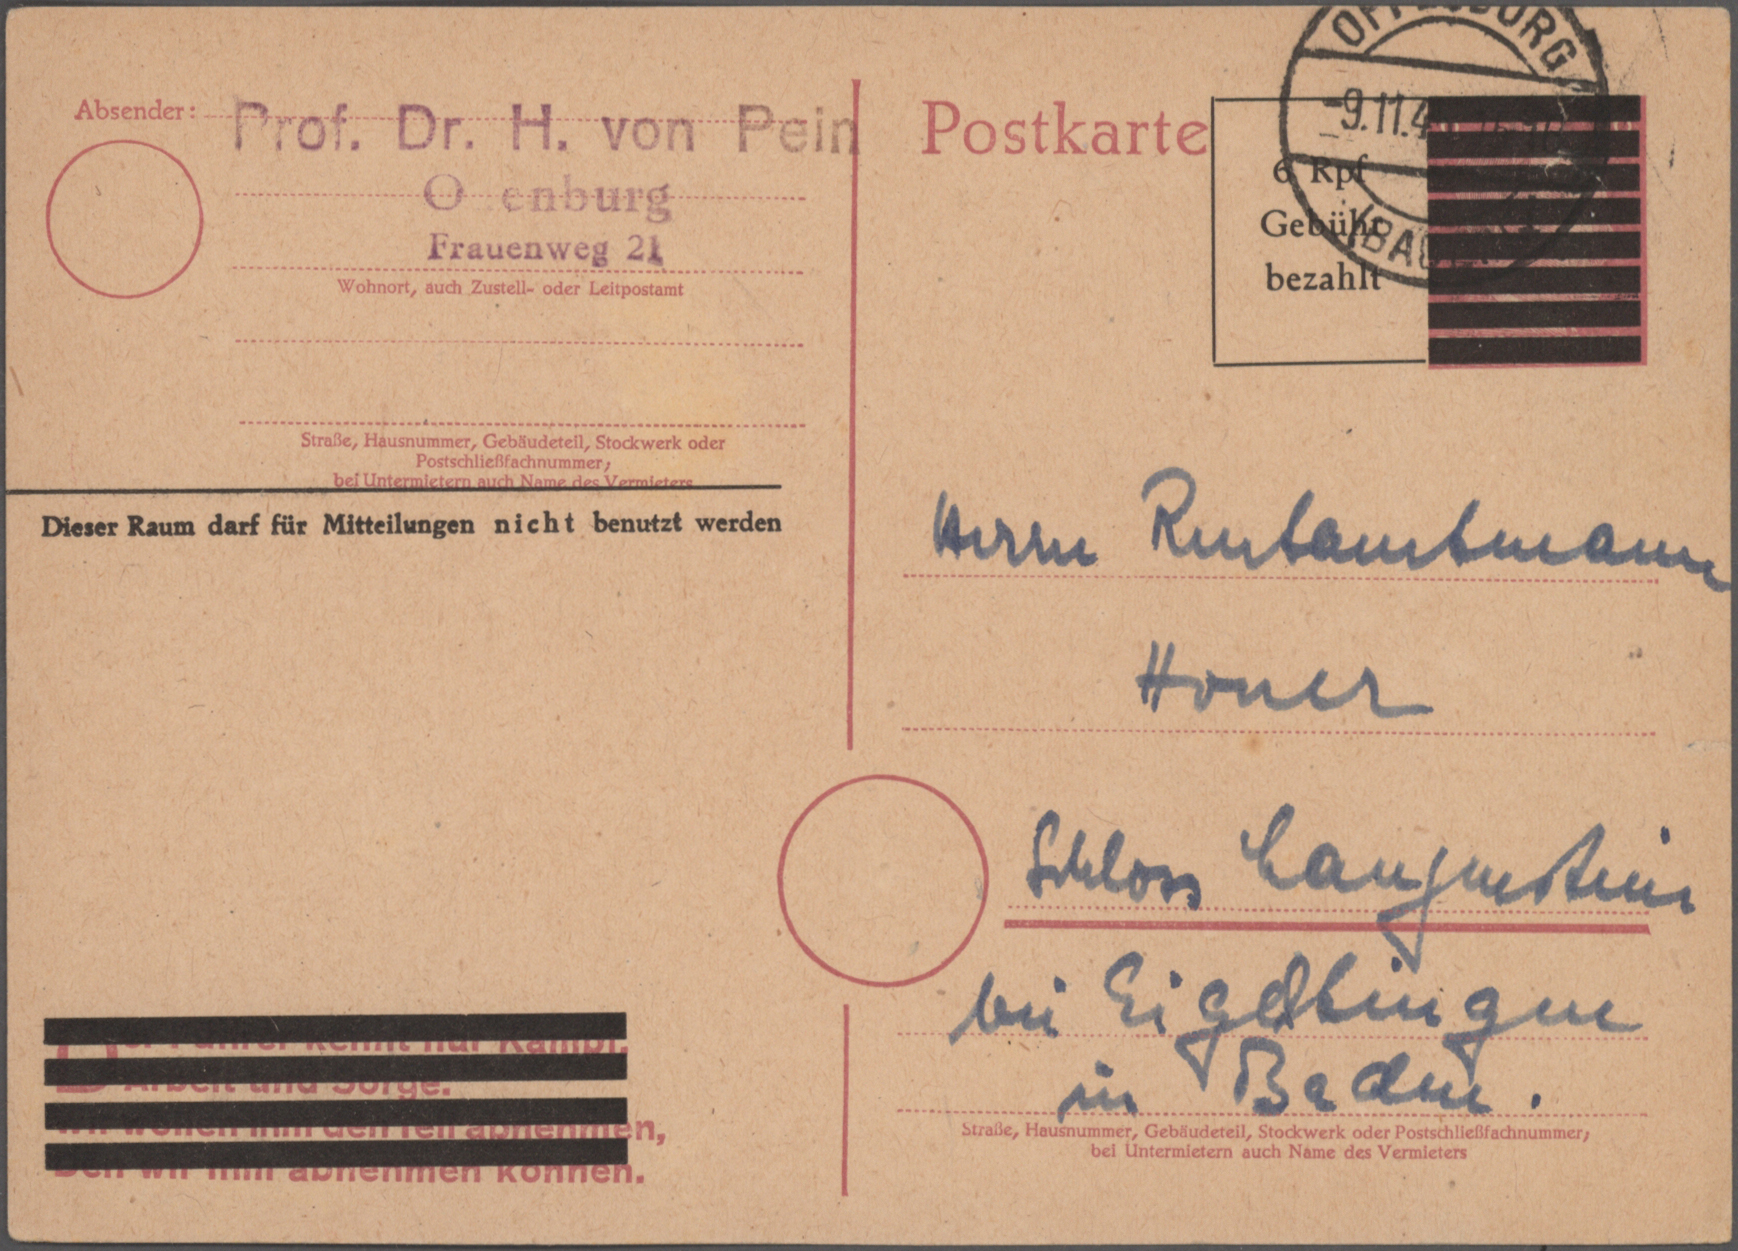 Absender:
Prof. Dr. H. von Pein
O enburg
Frauenweg 21
Wohnort, auch Zustell- oder Leitpostamt
Straße, Hausnummer, Gebäudeteil, Stockwerk oder
Postschließfachnummer,
bei Untermietern auch Name des Vermieters
Dieser Raum darf für Mitteilungen nicht benutzt werden
Der Führer kennt nur Kampf,
Arbeit und Sorge.
Wir wollen ihm den Teil abnehmen,
Den wir ihm abnehmen können.
Postkarte
OFFENBURG
-9.11.4
(BADEN)
6 Rpf
Gebühr
bezahlt
Herrn Rentamtmann
Honer
Schloss Langenstein
bei Eigeltingen
in Baden.
Straße, Hausnummer, Gebäudeteil, Stockwerk oder Postschließfachnummer,
bei Untermietern auch Name des Vermieters